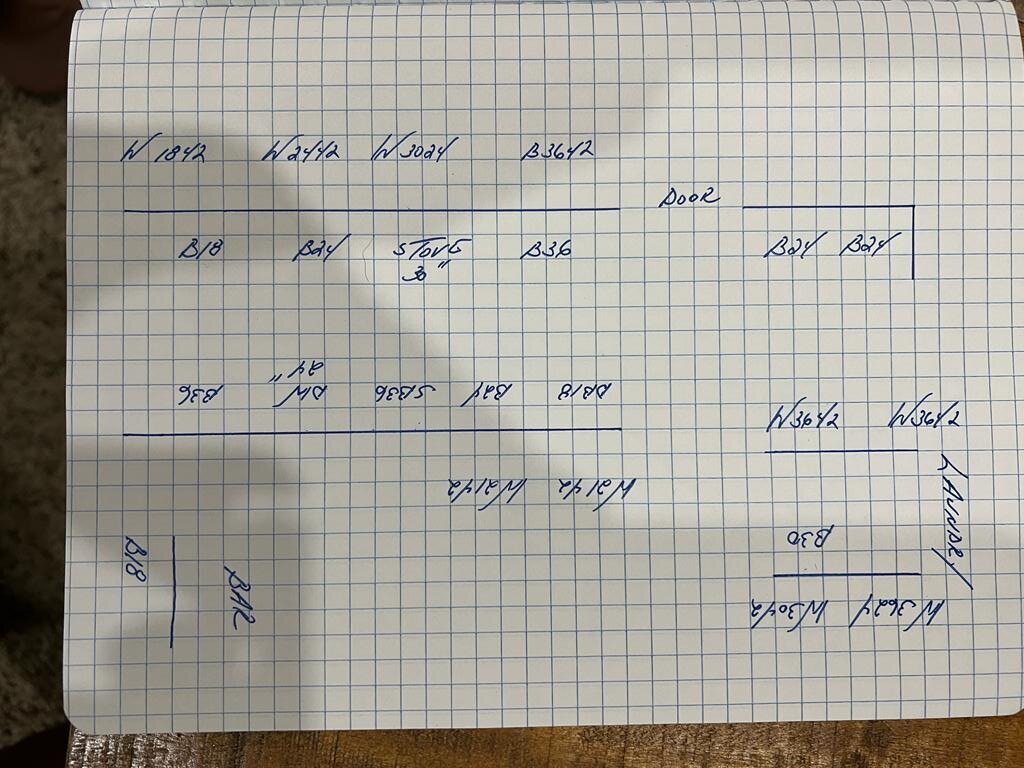 W1842 W2442 W3024 B3642
DOOR
B18 B24 STOVE B24 B24
30"
B36
B36 DW SB36 B24 DB18
24"
W3642 W3642
W2142 W2142
LAUNDRY
B30
B18 BAR
W3042 W3624